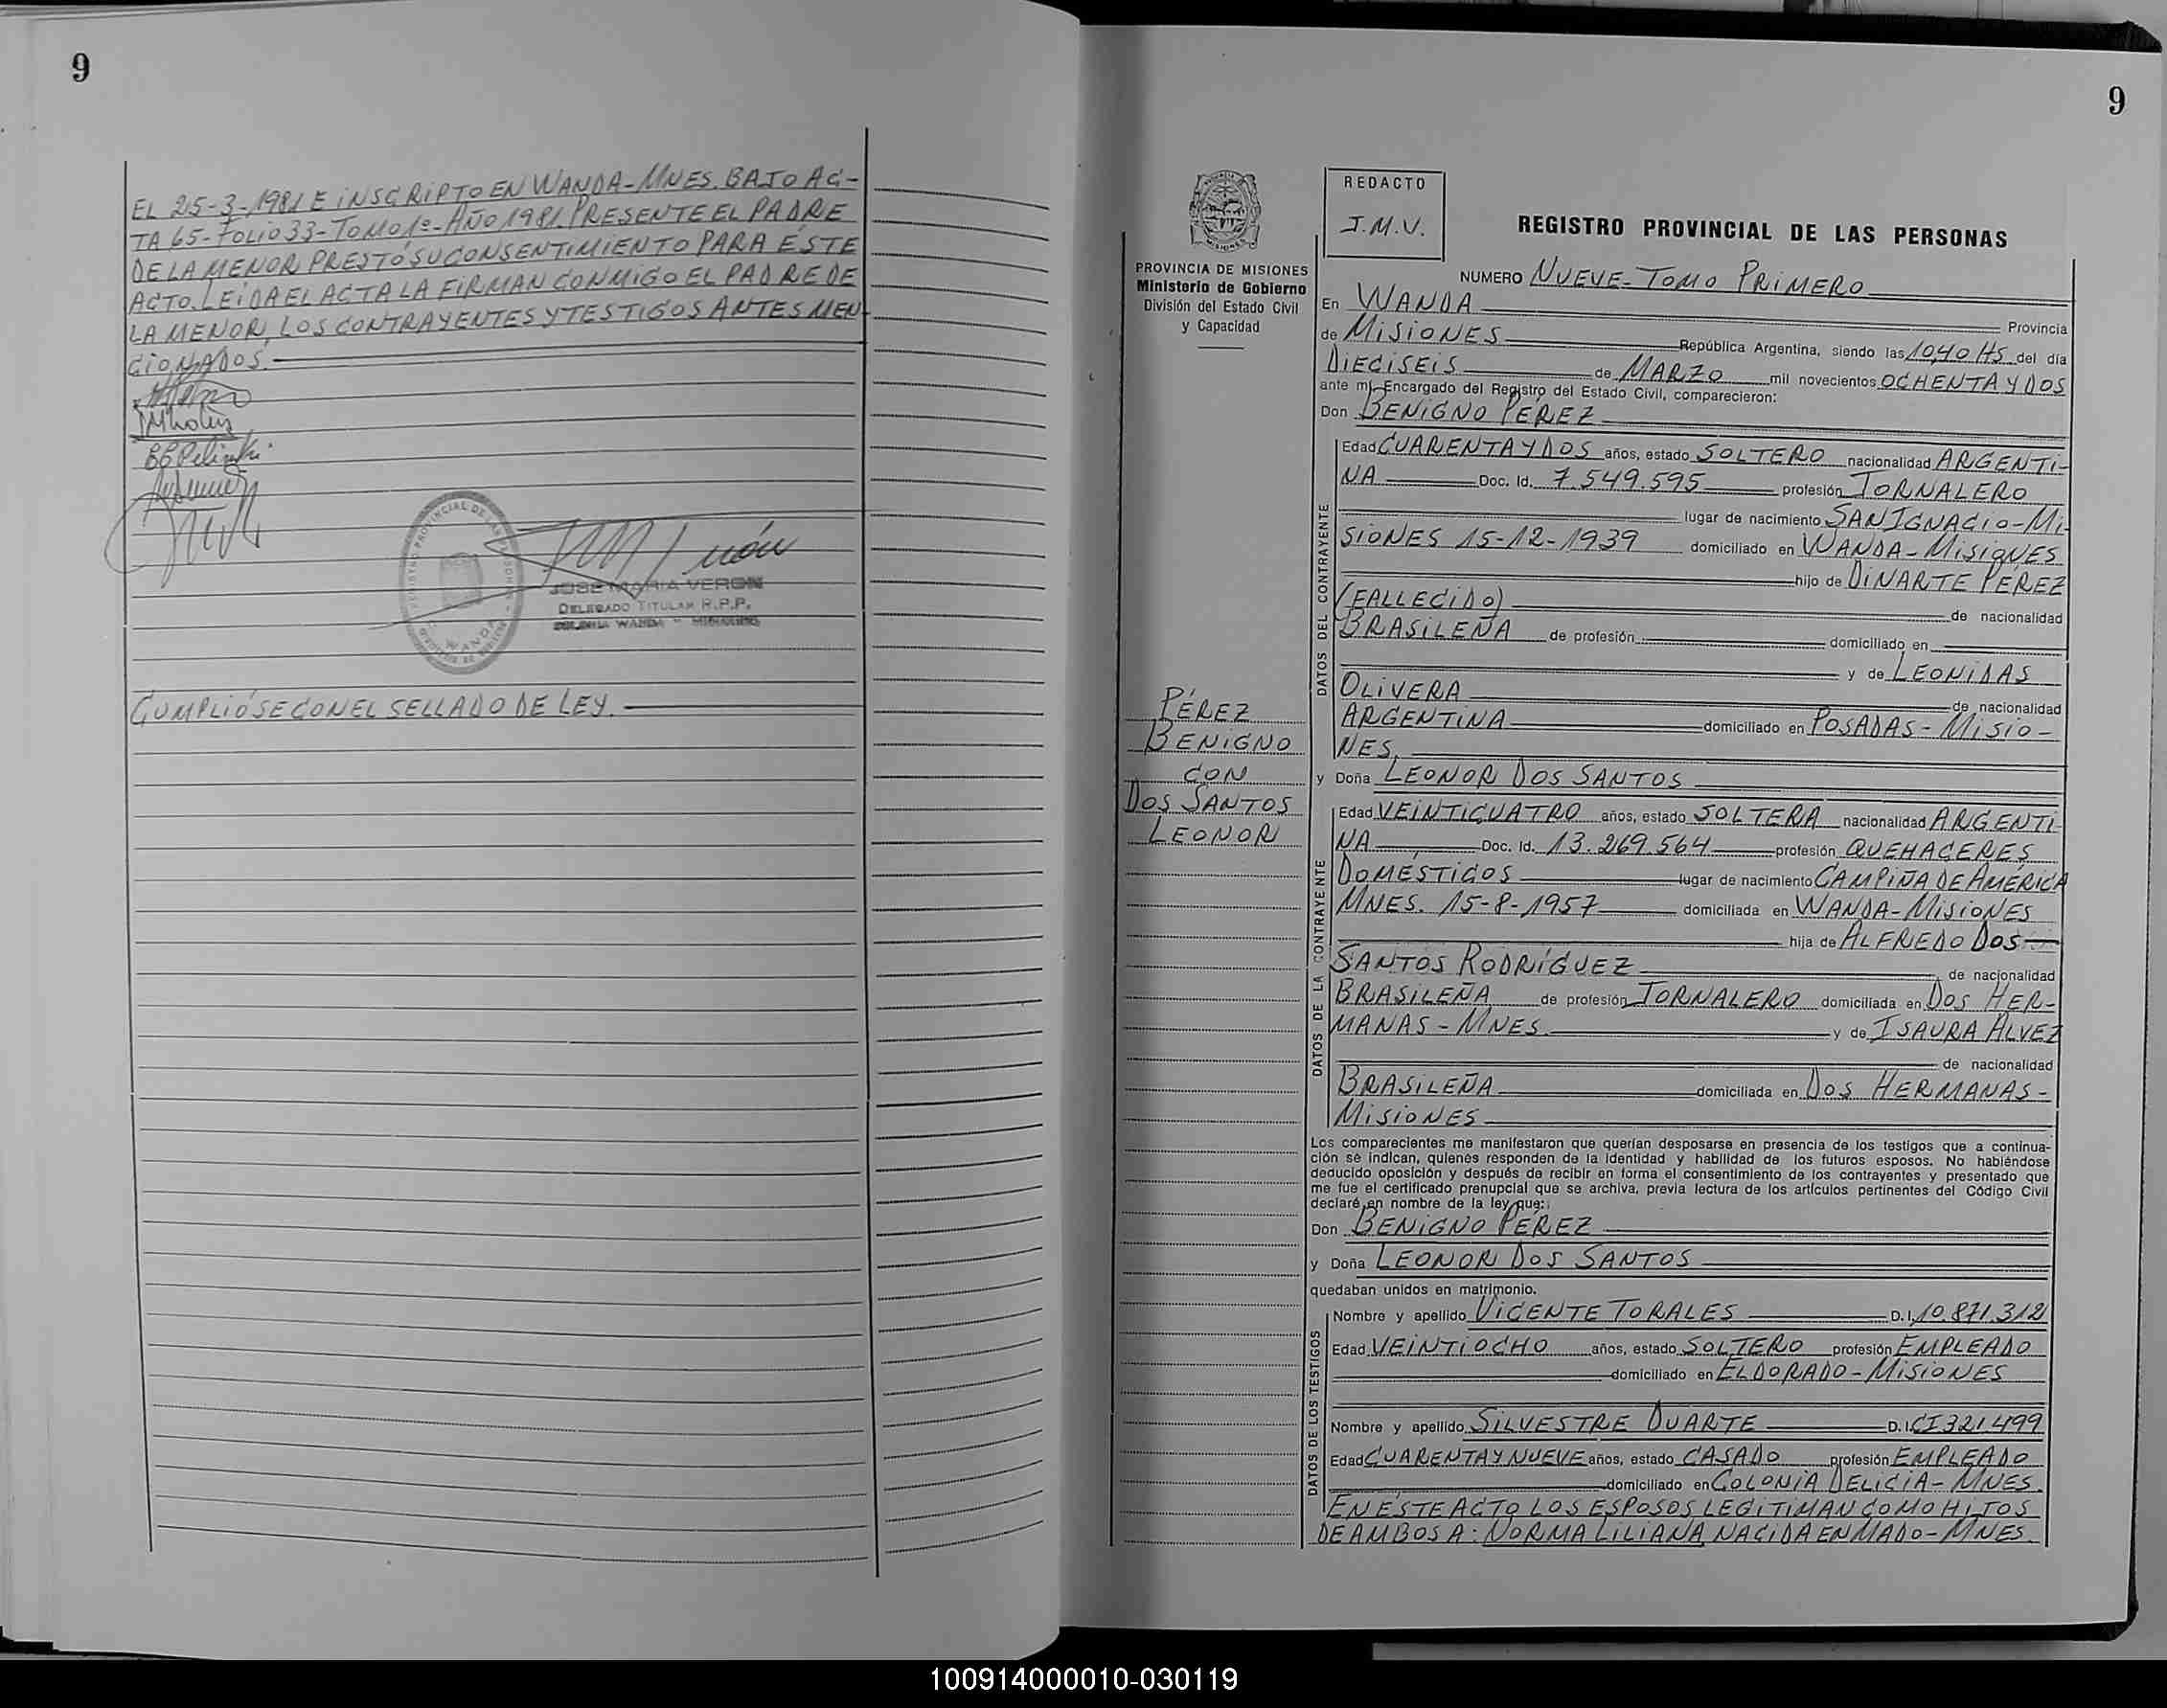 9
EL 25-3-1981 E INSCRIPTO EN WANDA-MNES. BAJO AC-
TA 65-FOLIO 33-TOMO 1º-AÑO 1981. PRESENTE EL PADRE
DE LA MENOR PRESTÓ SU CONSENTIMIENTO PARA ÉSTE
ACTO. LEÍDA EL ACTA LA FIRMAN CONMIGO EL PADRE DE
LA MENOR, LOS CONTRAYENTES Y TESTIGOS ANTES MEN
CIONADOS.
JOSE MARIA VERON
DELEGADO TITULAR R.P.P.
COLONIA WANDA - MISIONES
CUMPLIÓSE CON EL SELLADO DE LEY.
9
PROVINCIA DE MISIONES
Ministerio de Gobierno
División del Estado Civil
y Capacidad
PÉREZ
BENIGNO
CON
DOS SANTOS
LEONOR
REDACTO
J.M.V.
REGISTRO PROVINCIAL DE LAS PERSONAS
NUMERO NUEVE-TOMO PRIMERO
En WANDA Provincia
de MISIONES República Argentina, siendo las 10,40 HS del día
DIECISEIS de MARZO mil novecientos OCHENTA Y DOS
ante mi, Encargado del Registro del Estado Civil, comparecieron:
Don BENIGNO PEREZ
DATOS DEL CONTRAYENTE
Edad CUARENTA Y DOS años, estado SOLTERO nacionalidad ARGENTI-
NA Doc. Id. 7.549.595 profesión JORNALERO
lugar de nacimiento SAN IGNACIO-MI-
SIONES 15-12-1939 domiciliado en WANDA-MISIONES
hijo de DINARTE PEREZ
(FALLECIDO) de nacionalidad
BRASILEÑA de profesión domiciliado en
y de LEONIDAS
OLIVERA de nacionalidad
ARGENTINA domiciliado en POSADAS-MISIO-
NES
y Doña LEONOR DOS SANTOS
DATOS DE LA CONTRAYENTE
Edad VEINTICUATRO años, estado SOLTERA nacionalidad ARGENTI
NA Doc. Id. 13.269.564 profesión QUEHACERES
DOMÉSTICOS lugar de nacimiento CAMPIÑA DE AMÉRICA
MNES. 15-8-1957 domiciliada en WANDA-MISIONES
hija de ALFREDO DOS
SANTOS RODRÍGUEZ de nacionalidad
BRASILEÑA de profesión JORNALERO domiciliada en DOS HER-
MANAS-MNES. y de ISAURA ALVEZ
de nacionalidad
BRASILEÑA domiciliada en DOS HERMANAS-
MISIONES
Los comparecientes me manifestaron que querían desposarse en presencia de los testigos que a continua-
ción se indican, quienes responden de la identidad y habilidad de los futuros esposos. No habiéndose
deducido oposición y después de recibir en forma el consentimiento de los contrayentes y presentado que
me fue el certificado prenupcial que se archiva, previa lectura de los artículos pertinentes del Código Civil
declaré en nombre de la ley que:
Don BENIGNO PÉREZ
y Doña LEONOR DOS SANTOS
quedaban unidos en matrimonio.
DATOS DE LOS TESTIGOS
Nombre y apellido VICENTE TORALES D.I. 10.871.312
Edad VEINTIOCHO años, estado SOLTERO profesión EMPLEADO
domiciliado en ELDORADO-MISIONES
Nombre y apellido SILVESTRE DUARTE D.I. CI 321.499
Edad CUARENTA Y NUEVE años, estado CASADO profesión EMPLEADO
domiciliado en COLONIA DELICIA-MNES.
EN ÉSTE ACTO LOS ESPOSOS LEGITIMAN COMO HIJOS
DE AMBOS A: NORMA LILIANA NACIDA EN MADO-MNES.
100914000010-030119